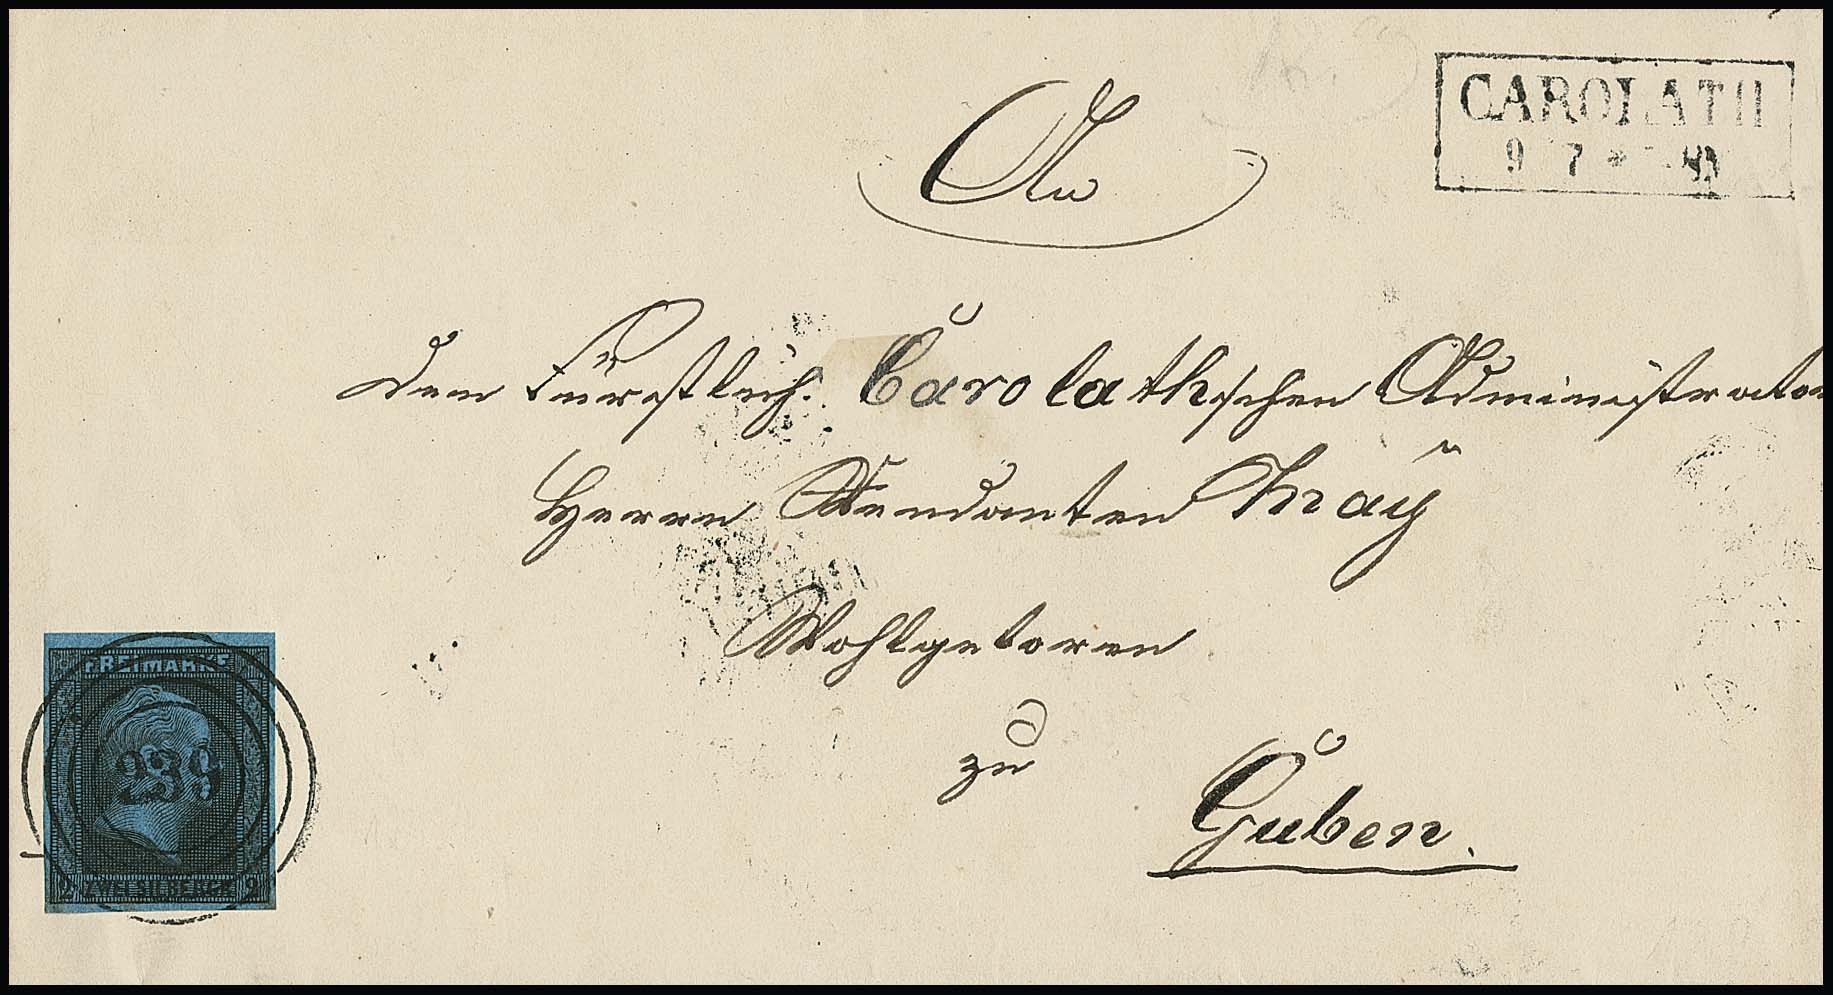 CAROLATH
9 7 *
An
Dem Fürstlich. Carolathschen Administrator
Herrn Rendanten May
Wohlgeboren
zu
Guben.
FREIMARKE
239
2 ZWEI SILBERGR. 2